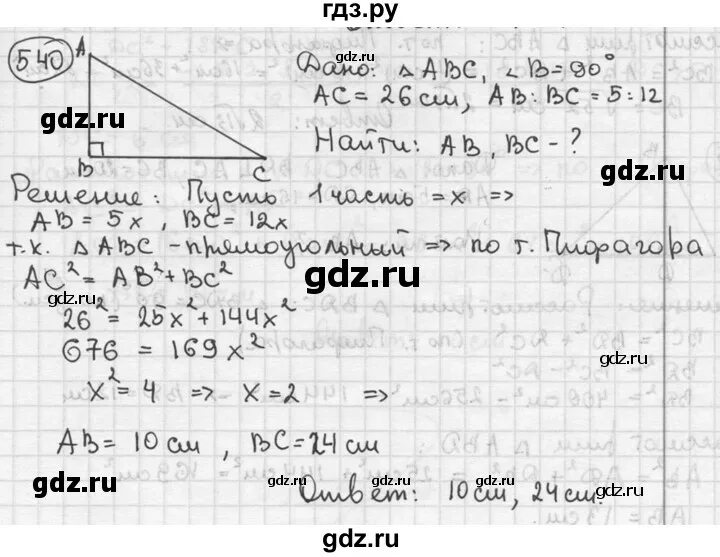 гдз.ру
540
A
B
C
Дано: △ABC, ∠B=90°
AC = 26 см, AB : BC = 5 : 12
Найти: AB, BC - ?
gdz.ru
gdz.ru
Решение: Пусть 1 часть = x =>
AB = 5x, BC = 12x
т.к. △ABC - прямоугольный => по т. Пифагора
AC² = AB² + BC²
gdz.ru
gdz.ru
26² = 25x² + 144x²
676 = 169x²
gdz.ru
x² = 4 => x = 2 =>
AB = 10 см, BC = 24 см
gdz.ru
gdz.ru
Ответ: 10 см, 24 см.
gdz.ru
гдз.рф